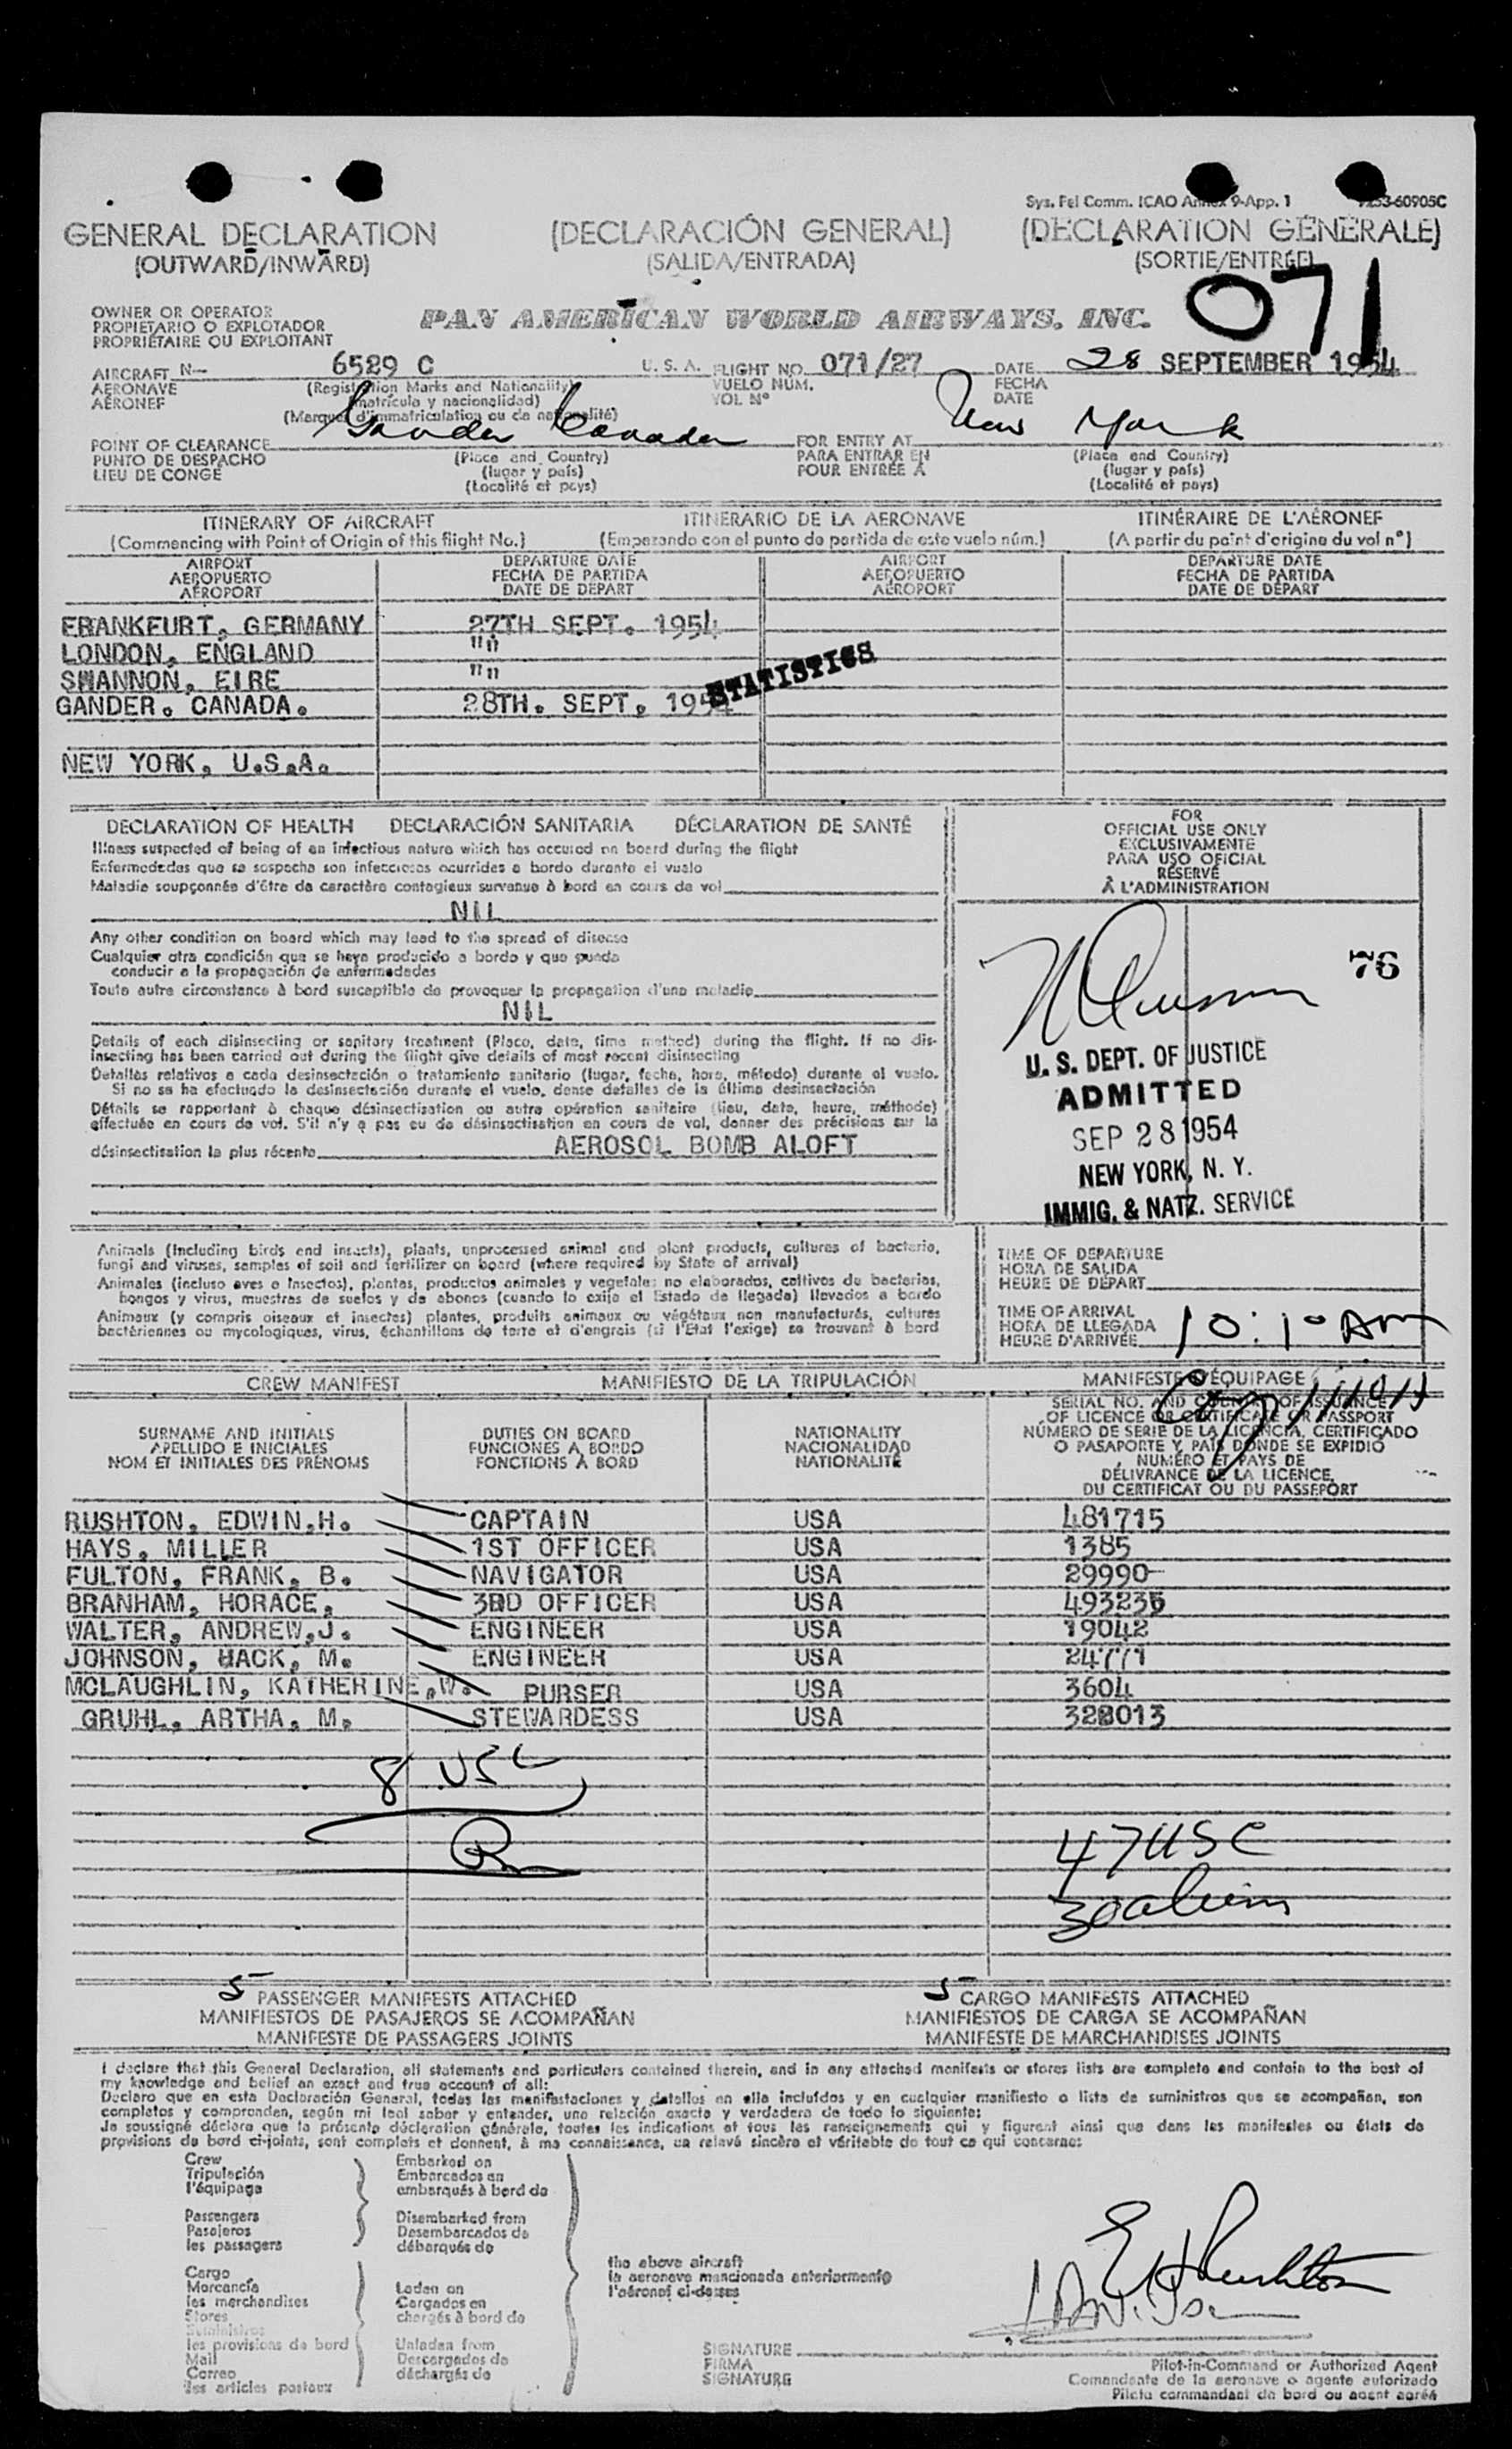 Sys. Fel Comm. ICAO Annex 9-App. 1
GENERAL DECLARATION (DECLARACIÓN GENERAL) (DECLARATION GÉNÉRALE)
(OUTWARD/INWARD) (SALIDA/ENTRADA) (SORTIE/ENTRÉE)
071
OWNER OR OPERATOR
PROPIETARIO O EXPLOTADOR
PROPRIÉTAIRE OU EXPLOITANT
PAN AMERICAN WORLD AIRWAYS, INC.
AIRCRAFT N— 6529 C U. S. A. FLIGHT NO. 071/27 DATE 28 SEPTEMBER 1954
AERONAVE (Registration Marks and Nationality) VUELO NÚM. FECHA
AÉRONEF (matrícula y nacionalidad) VOL Nº DATE
(Marques d'immatriculation ou de nationalité)
POINT OF CLEARANCE Gander Canada FOR ENTRY AT New York
PUNTO DE DESPACHO (Place and Country) PARA ENTRAR EN (Place and Country)
LIEU DE CONGÉ (lugar y país) POUR ENTRÉE À (lugar y país)
(Localité et pays) (Localité et pays)
ITINERARY OF AIRCRAFT ITINERARIO DE LA AERONAVE ITINÉRAIRE DE L'AÉRONEF
(Commencing with Point of Origin of this flight No.) (Empezando con el punto de partida de este vuelo núm.) (A partir du point d'origine du vol nº)
AIRPORT DEPARTURE DATE AIRPORT DEPARTURE DATE
AEROPUERTO FECHA DE PARTIDA AEROPUERTO FECHA DE PARTIDA
AÉROPORT DATE DE DÉPART AÉROPORT DATE DE DÉPART
FRANKFURT, GERMANY 27TH SEPT. 1954
LONDON, ENGLAND ""
SHANNON, EIRE ""
GANDER. CANADA. 28TH. SEPT, 1954
STATISTICS
NEW YORK, U.S.A.
DECLARATION OF HEALTH DECLARACIÓN SANITARIA DÉCLARATION DE SANTÉ
Illness suspected of being of an infectious nature which has occured on board during the flight
Enfermedades que se sospecha son infecciosas ocurridas a bordo durante el vuelo
Maladie soupçonnée d'être de caractère contagieux survenue à bord en cours de vol
NIL
Any other condition on board which may lead to the spread of disease
Cualquier otra condición que se haya producido a bordo y que pueda
conducir a la propagación de enfermedades
Toute autre circonstance à bord susceptible de provoquer la propagation d'une maladie
NIL
Details of each disinsecting or sanitary treatment (Place, date, time method) during the flight. If no dis-
insecting has been carried out during the flight give details of most recent disinsecting
Detalles relativos a cada desinsectación o tratamiento sanitario (lugar, fecha, hora, método) durante el vuelo.
Si no se ha efectuado la desinsectación durante el vuelo, dense detalles de la última desinsectación
Détails se rapportant à chaque désinsectisation ou autre opération sanitaire (lieu, date, heure, méthode)
effectuée en cours de vol. S'il n'y a pas eu de désinsectisation en cours de vol, donner des précisions sur la
désinsectisation la plus récente AEROSOL BOMB ALOFT
FOR
OFFICIAL USE ONLY
EXCLUSIVAMENTE
PARA USO OFICIAL
RÉSERVÉ
À L'ADMINISTRATION
76
U. S. DEPT. OF JUSTICE
ADMITTED
SEP 28 1954
NEW YORK, N. Y.
IMMIG. & NATZ. SERVICE
Animals (Including birds and insects), plants, unprocessed animal and plant products, cultures of bacteria,
fungi and viruses, samples of soil and fertilizer on board (where required by State of arrival)
Animales (incluso aves e insectos), plantas, productos animales y vegetales no elaborados, cultivos de bacterias,
hongos y virus, muestras de suelos y de abonos (cuando lo exija el Estado de llegada) llevados a bordo
Animaux (y compris oiseaux et insectes) plantes, produits animaux ou végétaux non manufacturés, cultures
bactériennes ou mycologiques, virus, échantillons de terre et d'engrais (si l'Etat l'exige) se trouvant à bord
TIME OF DEPARTURE
HORA DE SALIDA
HEURE DE DÉPART
TIME OF ARRIVAL
HORA DE LLEGADA
HEURE D'ARRIVÉE 10:10 AM
CREW MANIFEST MANIFIESTO DE LA TRIPULACIÓN MANIFESTE D'ÉQUIPAGE
SURNAME AND INITIALS DUTIES ON BOARD NATIONALITY SERIAL NO. AND COUNTRY OF ISSUANCE
APELLIDO E INICIALES FUNCIONES A BORDO NACIONALIDAD OF LICENCE OR CERTIFICATE OR PASSPORT
NOM ET INITIALES DES PRÉNOMS FONCTIONS À BORD NATIONALITÉ NÚMERO DE SERIE DE LA LICENCIA, CERTIFICADO
O PASAPORTE Y PAÍS DONDE SE EXPIDIÓ
NUMÉRO ET PAYS DE
DÉLIVRANCE DE LA LICENCE,
DU CERTIFICAT OU DU PASSEPORT
RUSHTON, EDWIN.H. CAPTAIN USA 481715
HAYS, MILLER 1ST OFFICER USA 1385
FULTON, FRANK, B. NAVIGATOR USA 29990
BRANHAM, HORACE, 3RD OFFICER USA 493235
WALTER, ANDREW,J. ENGINEER USA 19042
JOHNSON, MACK, M. ENGINEER USA 24771
MCLAUGHLIN, KATHERINE,W. PURSER USA 3604
GRUHL, ARTHA, M. STEWARDESS USA 328013
8 USC
47 USC
30 aliens
5 PASSENGER MANIFESTS ATTACHED 5 CARGO MANIFESTS ATTACHED
MANIFIESTOS DE PASAJEROS SE ACOMPAÑAN MANIFIESTOS DE CARGA SE ACOMPAÑAN
MANIFESTE DE PASSAGERS JOINTS MANIFESTE DE MARCHANDISES JOINTS
I declare that this General Declaration, all statements and particulars contained therein, and in any attached manifests or stores lists are complete and contain to the best of
my knowledge and belief an exact and true account of all:
Declaro que en esta Declaración General, todas las manifestaciones y detalles en ella incluídos y en cualquier manifiesto o lista de suministros que se acompañan, son
completos y comprenden, según mi leal saber y entender, una relación exacta y verdadera de todo lo siguiente:
Je soussigné déclare que la présente déclaration générale, toutes les indications et tous les renseignements qui y figurent ainsi que dans les manifestes ou états de
provisions de bord ci-joints, sont complets et donnent, à ma connaissance, un relevé sincère et véritable de tout ce qui concerne:
Crew Embarked on
Tripulación Embarcados en
l'équipage embarqués à bord de
Passengers Disembarked from
Pasajeros Desembarcados de
les passagers débarqués de
the above aircraft
la aeronave mencionada anteriormente
l'aéronef ci-dessus
Cargo
Mercancía Laden on
les marchandises Cargados en
Stores chargés à bord de
Suministros
les provisions de bord Unladen from
Mail Descargados de
Correo déchargés de
les articles postaux
EH Rushton
SIGNATURE
FIRMA
SIGNATURE
Pilot-in-Command or Authorized Agent
Comandante de la aeronave o agente autorizado
Pilote commandant de bord ou agent agréé